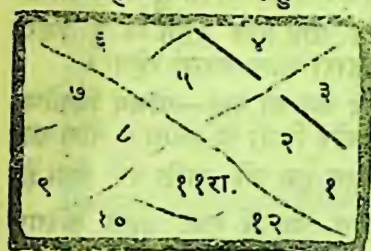 ६ ४
७ ५ ३
८ २
९ ११रा. १
१० १२